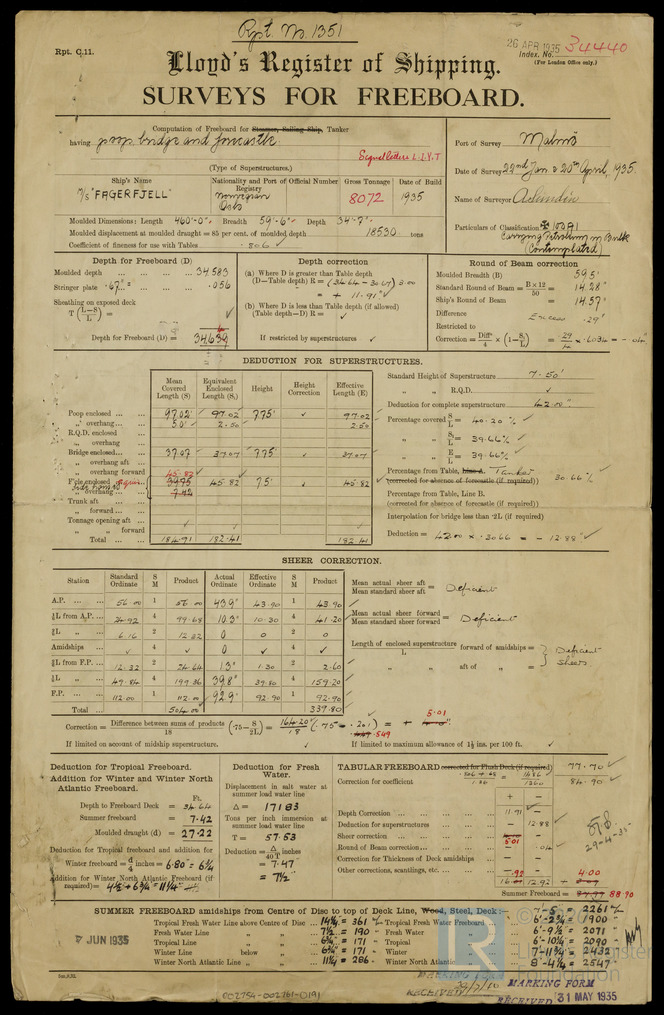 Rpt. No. 1351
Rpt. C.11.
26 APR 1935
Index. No. 34440
(For London Office only.)
Lloyd's Register of Shipping.
SURVEYS FOR FREEBOARD.
Computation of Freeboard for Steamer, Sailing Ship, Tanker
having poop bridge and forecastle
Signal letters L.J.Y.T
(Type of Superstructures.)
Port of Survey Malmö
Date of Survey 22nd Jan. & 20th April, 1935.
Name of Surveyor A. Lundin
Particulars of Classification 100A1
Carrying Petroleum in Bulk
(Contemplated)
Ship's Name
Nationality and Port of Registry
Official Number
Gross Tonnage
Date of Build
M/S "FAGERFJELL"
Norwegian
Oslo
8072
1935
Moulded Dimensions: Length 460'-0" Breadth 59'-6" Depth 34'-7"
Moulded displacement at moulded draught = 85 per cent. of moulded depth 18530 tons
Coefficient of fineness for use with Tables .806
Depth for Freeboard (D)
Moulded depth ... 34.583
Stringer plate .67" .056
Sheathing on exposed deck
T (L-S/L) =
Depth for Freeboard (D) = 34.639
Depth correction
(a) Where D is greater than Table depth
(D—Table depth) R = (34.64 - 30.67) 3.00
= + 11.91"
(b) Where D is less than Table depth (if allowed)
(Table depth—D) R =
If restricted by superstructures
Round of Beam correction
Moulded Breadth (B) 59.5'
Standard Round of Beam = B×12/50 = 14.28"
Ship's Round of Beam = 14.57"
Difference Excess .29"
Restricted to
Correction = Diffce/4 × (1-S₁/L) = .29/4 × .6034 = - .04
DEDUCTION FOR SUPERSTRUCTURES.
Mean Covered Length (S)
Equivalent Enclosed Length (S₁)
Height
Height Correction
Effective Length (E)
Poop enclosed ... 97.02' 97.02 7.75' 97.02
„ overhang ... 5.0' 2.50 2.50
R.Q.D. enclosed
„ overhang
Bridge enclosed ... 37.07 37.07 7.75 37.07
„ overhang aft ...
„ overhang forward
F'cle enclosed 45.82 39.75 45.82 7.5' 45.82
„ overhang ... 7.42
Trunk aft ...
„ forward ...
Tonnage opening aft ...
„ „ forward
Total ... 184.91 182.41 182.41
Standard Height of Superstructure 7.50'
„ „ R.Q.D.
Deduction for complete superstructure 42.00"
Percentage covered S/L = 40.20 %
„ „ S₁/L = 39.66%
„ „ E/L = 39.66%
Percentage from Table, Line A. Tanker
(corrected for absence of forecastle (if required)) 30.66 %
Percentage from Table, Line B.
(corrected for absence of forecastle (if required))
Interpolation for bridge less than .2L (if required)
Deduction = 42.00 × .3066 = - 12.88"
SHEER CORRECTION.
Station
Standard Ordinate
S M
Product
Actual Ordinate
Effective Ordinate
S M
Product
A.P. ... 56.00 1 56.00 43.9" 43.90 1 43.90
⅙L from A.P. ... 24.92 4 99.68 10.3" 10.30 4 41.20
⅓L „ ... 6.16 2 12.32 0 0 2 0
Amidships ... 4 0 4
⅓L from F.P. ... 12.32 2 24.64 1.3" 1.30 2 2.60
⅙L „ ... 49.84 4 199.36 39.8" 39.80 4 159.20
F.P. ... 112.00 1 112.00 92.9" 92.90 1 92.90
Total ... 504.00 339.80
Mean actual sheer aft / Mean standard sheer aft = Deficient
Mean actual sheer forward / Mean standard sheer forward = Deficient
Length of enclosed superstructure forward of amidships / L =
„ „ aft of „ =
Deficient Sheers
Correction = Difference between sums of products/18 (.75 - S/2L) = 164.20/18 (.75 - .201) = + 5.01
.549
If limited on account of midship superstructure.
If limited to maximum allowance of 1½ ins. per 100 ft.
Deduction for Tropical Freeboard.
Addition for Winter and Winter North Atlantic Freeboard.
Ft.
Depth to Freeboard Deck = 34.64
Summer freeboard = 7.42
Moulded draught (d) = 27.22
Deduction for Tropical freeboard and addition for Winter freeboard = d/4 inches = 6.80 = 6¾
Addition for Winter North Atlantic Freeboard (if required) = 4½ + 6¾ = 11¼
Deduction for Fresh Water.
Displacement in salt water at summer load water line
Δ = 17183
Tons per inch immersion at summer load water line
T = 57.53
Deduction = Δ/40T inches
= 7.47
= 7½"
TABULAR FREEBOARD corrected for Flush Deck (if required) 77.70
Correction for coefficient .806 + .68 / 1.36 = 1.486/1.360 84.90
+ -
Depth Correction ... 11.91 -
Deduction for superstructures ... - 12.88
Sheer correction ... 5.01 -
Round of Beam correction ... - .04
Correction for Thickness of Deck amidships - -
Other corrections, scantlings, etc. ...
16.92 12.92 4.00
Summer Freeboard = 88.90
29-4-35
SUMMER FREEBOARD amidships from Centre of Disc to top of Deck Line, Wood, Steel, Deck:— 7'-5" = 2261
Tropical Fresh Water Line above Centre of Disc ... 14¼ = 361 Tropical Fresh Water Freeboard 6'-2¾" = 1900
Fresh Water Line „ „ ... 7½ = 190 Fresh Water „ 6'-9½" = 2071
Tropical Line „ „ ... 6¾ = 171 Tropical „ 6'-10¼" = 2090
Winter Line below „ ... 6¾ = 171 Winter „ 7'-11¾" = 2432
Winter North Atlantic Line „ „ ... 11¼ = 286 Winter North Atlantic „ 8'-4¼" = 2547
7 JUN 1935
MARKING FORM
RECEIVED
MARKING FORM
RECEIVED 31 MAY 1935
002754-002761-0191
LR
Foundation